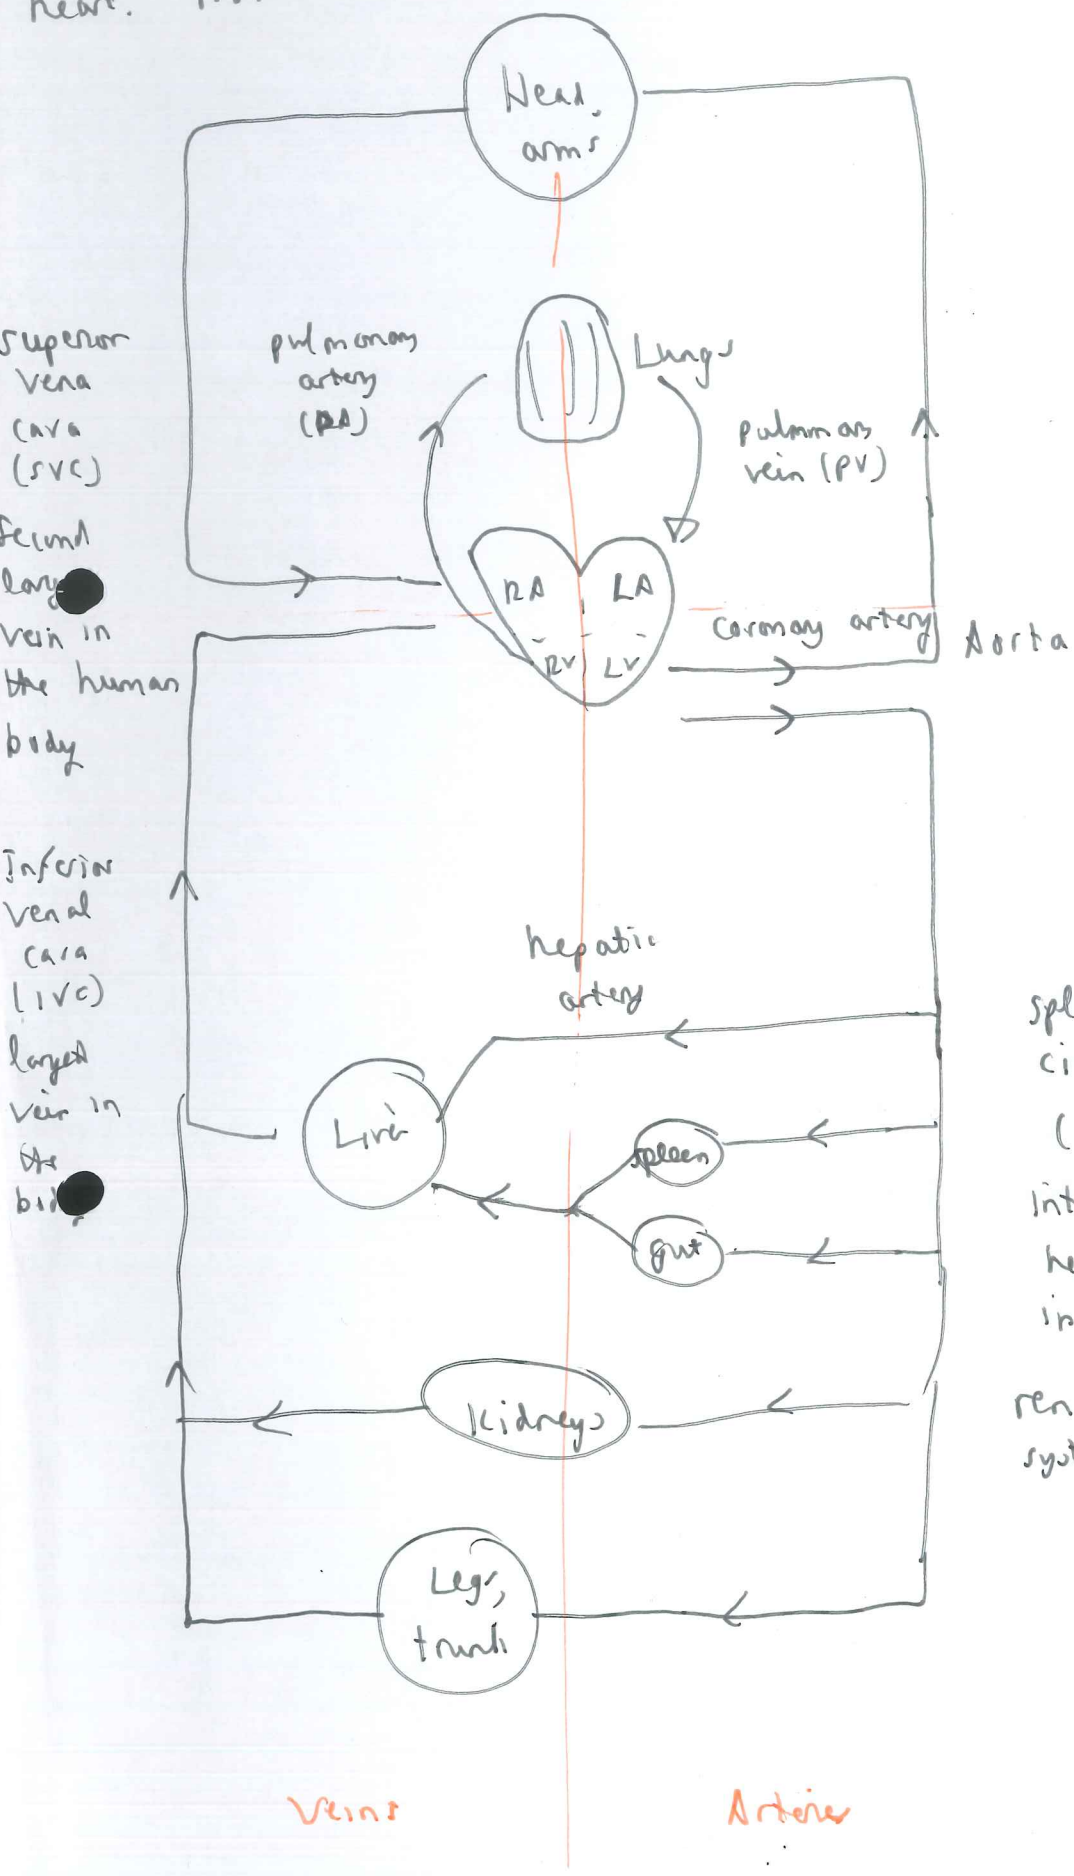 heart.
Head,
arms
superior
vena
cava
(SVC)
second
vein in
the human
body
pulmonary
artery
(PA)
Lungs
pulmonary
vein (PV)
RA
LA
RV
LV
coronary artery
Aorta
Inferior
venal
cava
(IVC)
largest
vein in
the
hepatic
artery
Liver
spleen
gut
spl
ci
(
int
he
in
Kidneys
ren
syst
Legs,
trunk
Veins
Arteries